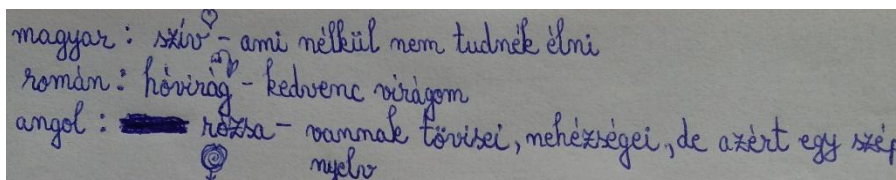 magyar: szív - ami nélkül nem tudnék élni
román: hóvirág - kedvenc virágom
angol: rózsa - vannak tövisei, nehézségei, de azért egy szép
nyelv